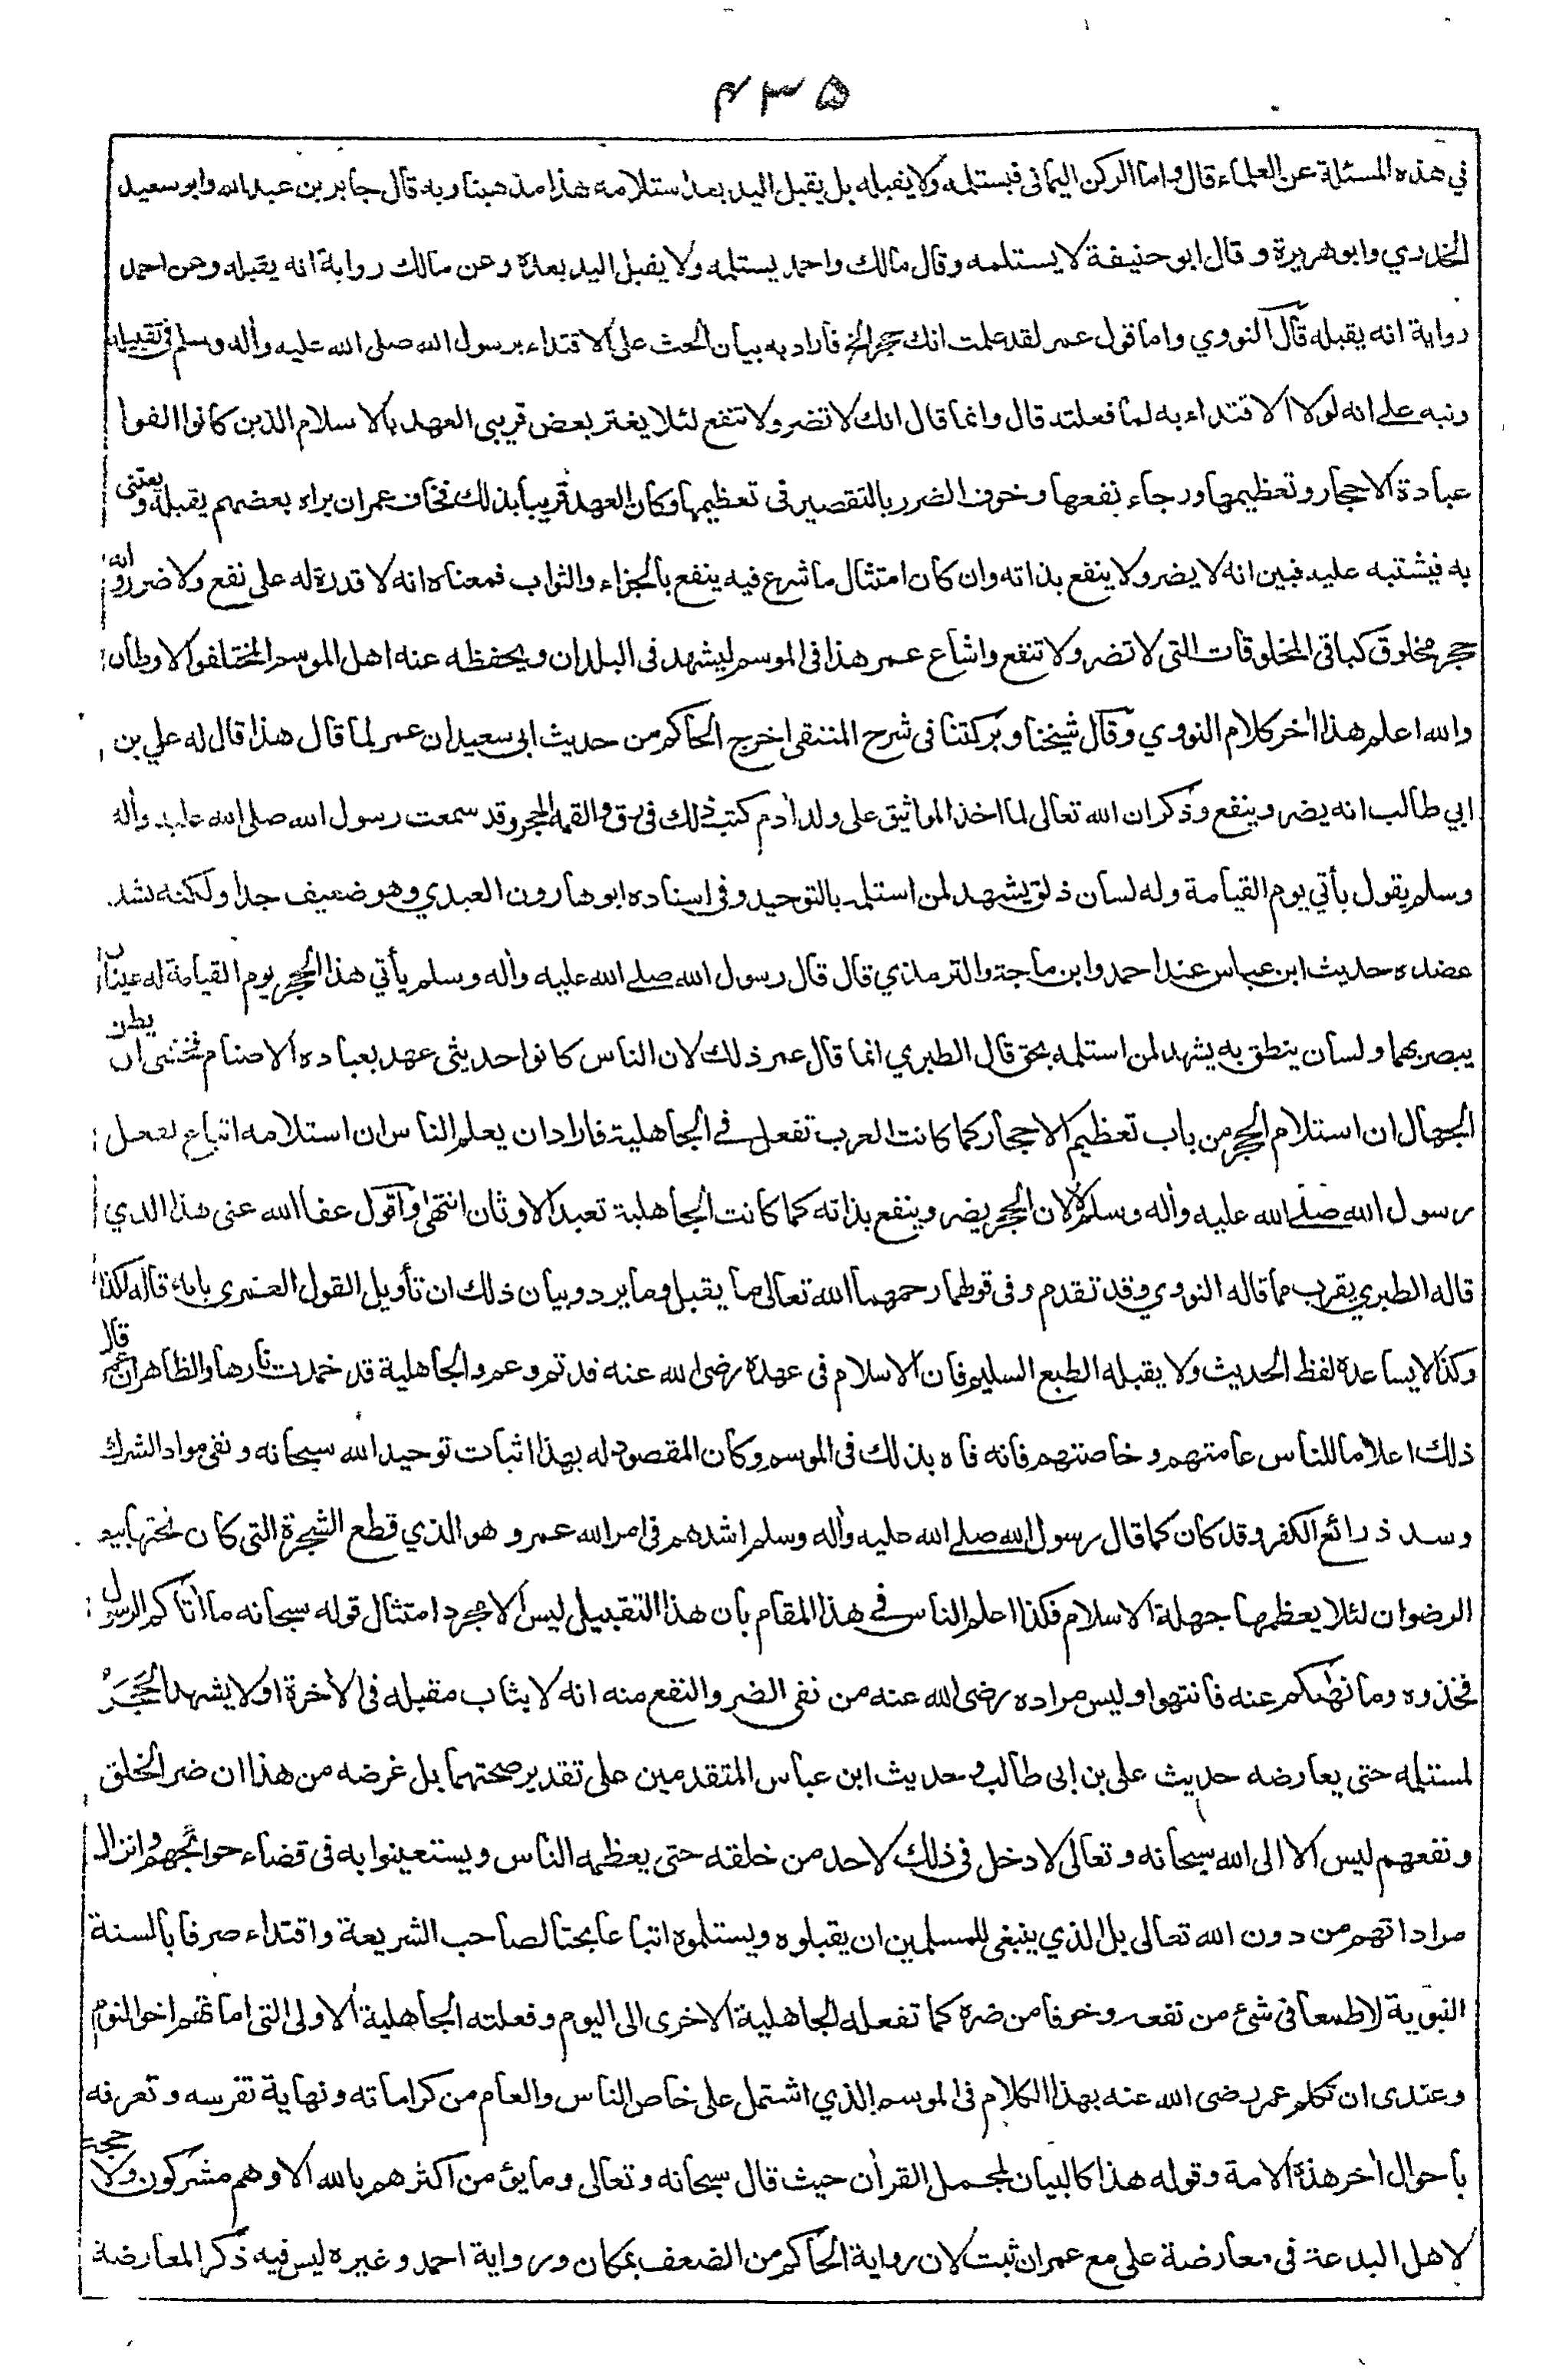 ٤٣٥
في هذه المسئلة عن العلماء قال واما الركن اليمانى فيستلمه ولا يقبله بل يقبل اليد بعد استلامه هذا مذهبنا وبه قال جابر بن عبدالله وابو سعيد
الخدري وابو هريرة وقال ابو حنيفة لا يستلمه وقال مالك واحمد يستلمه ولا يقبل اليد بعده وعن مالك رواية انه يقبله وعن احمد
رواية انه يقبله قال النووي واما قول عمر لقد علمت انك حجر الخ فأراد به بيان الحث على الاقتداء برسول الله صلى الله عليه وأله وسلم فى تقبيله
ونبه على انه لولا الاقتداء به لما فعلته قال وانما قال انك لا تضر ولا تنفع لئلا يغتر بعض قريبى العهد بالاسلام الذين كانوا الفوا
عبادة الاحجار وتعظيمها ورجاء نفعها وخوف الضرر بالتقصير فى تعظيمها وكان العهد قريبا بذلك فخاف عمر ان يراه بعضهم يقبله ويعتنى
به فيشتبه عليه فبين انه لا يضر ولا ينفع بذاته وان كان امتثال ما شرع فيه ينفع بالجزاء والثواب فمعناه انه لا قدرة له على نفع ولا ضرر وانه
حجر مخلوق كباقى المخلوقات التى لا تضر ولا تنفع واشاع عمر هذا فى الموسم ليشهد فى البلدان ويحفظه عنه اهل الموسم المختلفو الاوطان
والله اعلم هذا أخر كلام النووي وقال شيخنا وبركتنا فى شرح المنتقى اخرج الحاكم من حديث ابى سعيد ان عمر لما قال هذا قال له علي بن
ابي طالب انه يضر وينفع وذكر ان الله تعالى لما اخذ المواثيق على ولد أدم كتب ذلك فى رق والقمه الحجر وقد سمعت رسول الله صلى الله عليه وأله
وسلم يقول يأتي يوم القيامة وله لسان ذلق يشهد لمن استلمه بالتوحيد وفى اسناده ابو هارون العبدي وهو ضعيف جدا ولكنه يشد
عضده حديث ابن عباس عند احمد وابن ماجة والترمذي قال قال رسول الله صلى الله عليه وأله وسلم يأتي هذا الحجر يوم القيامة له عينان
يبصر بهما ولسان ينطق به يشهد لمن استلمه بحق قال الطبري انما قال عمر ذلك لان الناس كانوا حديثى عهد بعبادة الاصنام فخشى ان يظن
الجهال ان استلام الحجر من باب تعظيم الاحجار كما كانت العرب تفعل في الجاهلية فاراد ان يعلم الناس ان استلامه اتباع لفعل
رسول الله صلى الله عليه وأله وسلم لا لان الحجر يضر وينفع بذاته كما كانت الجاهلية تعبد الاوثان انتهى واقول عفا الله عنى هذا الذي
قاله الطبري يقرب مما قاله النووي وقد تقدم وفى قولهما رحمهما الله تعالى ما يقبل وما يرد وبيان ذلك ان تأويل القول العمرى بانه قاله لكذا
وكذا لا يساعده لفظ الحديث ولا يقبله الطبع السليم فان الاسلام فى عهده رضى الله عنه قد تم وعم والجاهلية قد خمدت نارها والظاهر ان عمر قال
ذلك اعلاما للناس عامتهم وخاصتهم فانه فاه بذلك فى الموسم وكان المقصود له بهذا اثبات توحيد الله سبحانه ونفى مواد الشرك
وسد ذرائع الكفر وقد كان كما قال رسول الله صلى الله عليه وأله وسلم اشدهم فى امر الله عمر وهو الذي قطع الشجرة التى كان تحتها بيعة
الرضوان لئلا يعظمها جهلة الاسلام فكذا اعلم الناس في هذا المقام بأن هذا التقبيل ليس الا مجرد امتثال قوله سبحانه ما أتاكم الرسول
فخذوه وما نهٰىكم عنه فانتهوا وليس مراده رضى الله عنه من نفى الضر والنفع منه انه لا يثاب مقبله فى الأخرة او لا يشهد الحَجَرُ
لمستلمه حتى يعارضه حديث على بن ابى طالب وحديث ابن عباس المتقدمين على تقدير صحتهما بل غرضه من هذا ان ضر الخلق
ونفعهم ليس الا الى الله سبحانه وتعالى لا دخل فى ذلك لاحد من خلقه حتى يعظمه الناس ويستعينوا به فى قضاء حوائجهم وانزال
مراداتهم من دون الله تعالى بل الذي ينبغى للمسلمين ان يقبلوه ويستلموه اتباعا بحتا لصاحب الشريعة واقتداء صرفا بالسنة
النبوية لا طمعا فى شئ من نفعه وخوفا من ضره كما تفعله الجاهلية الاخرى الى اليوم وفعلته الجاهلية الاولى التى اماتهم اخو النوم
وعندى ان تكلم عمر رضى الله عنه بهذا الكلام فى الموسم الذي اشتمل على خاص الناس والعام من كراماته ونهاية تفرسه وتعرفه
بأحوال أخر هذه الامة وقوله هذا كالبيان لمجمل القرأن حيث قال سبحانه وتعالى وما يؤمن اكثرهم بالله الا وهم مشركون ولا حجة
لاهل البدعة فى معارضة على مع عمر ان ثبت لان رواية الحاكم من الضعف بمكان ورواية احمد وغيره ليس فيه ذكر المعارضة